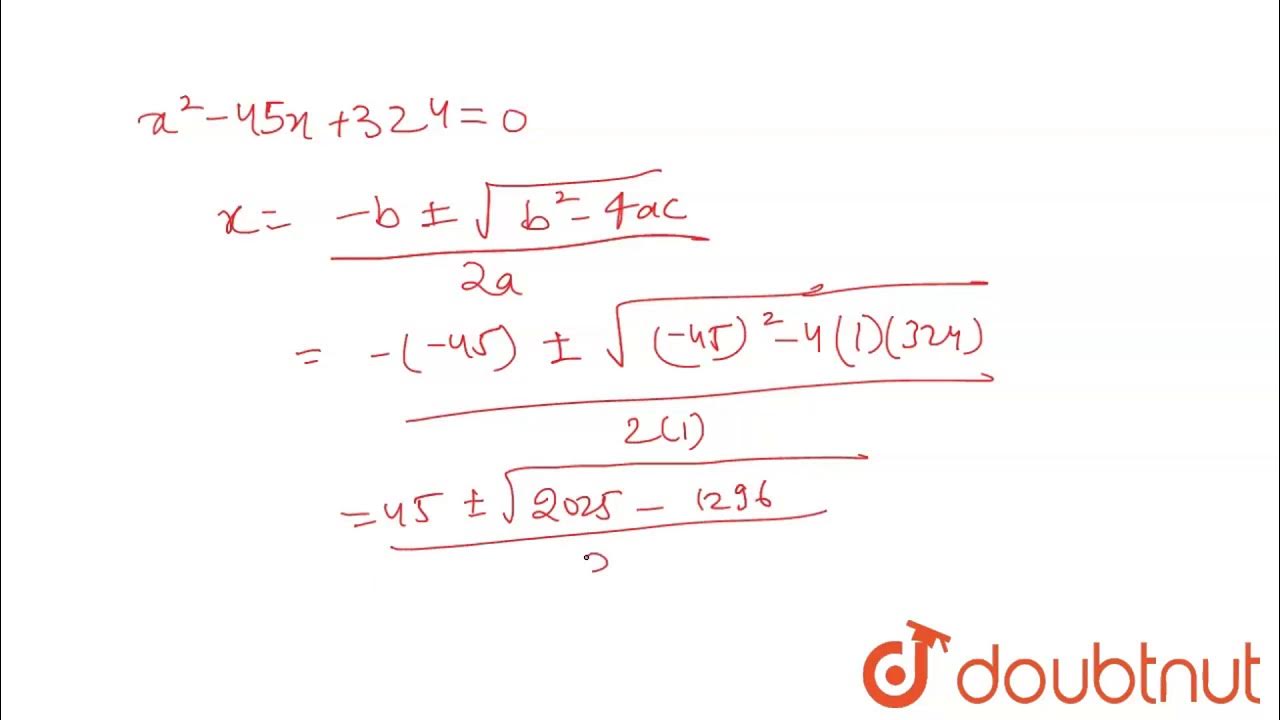 x² - 45x + 324 = 0
x = -b ± √(b² - 4ac)
2a
= -(-45) ± √((-45)² - 4(1)(324))
2(1)
= 45 ± √(2025 - 1296)
2
doubtnut